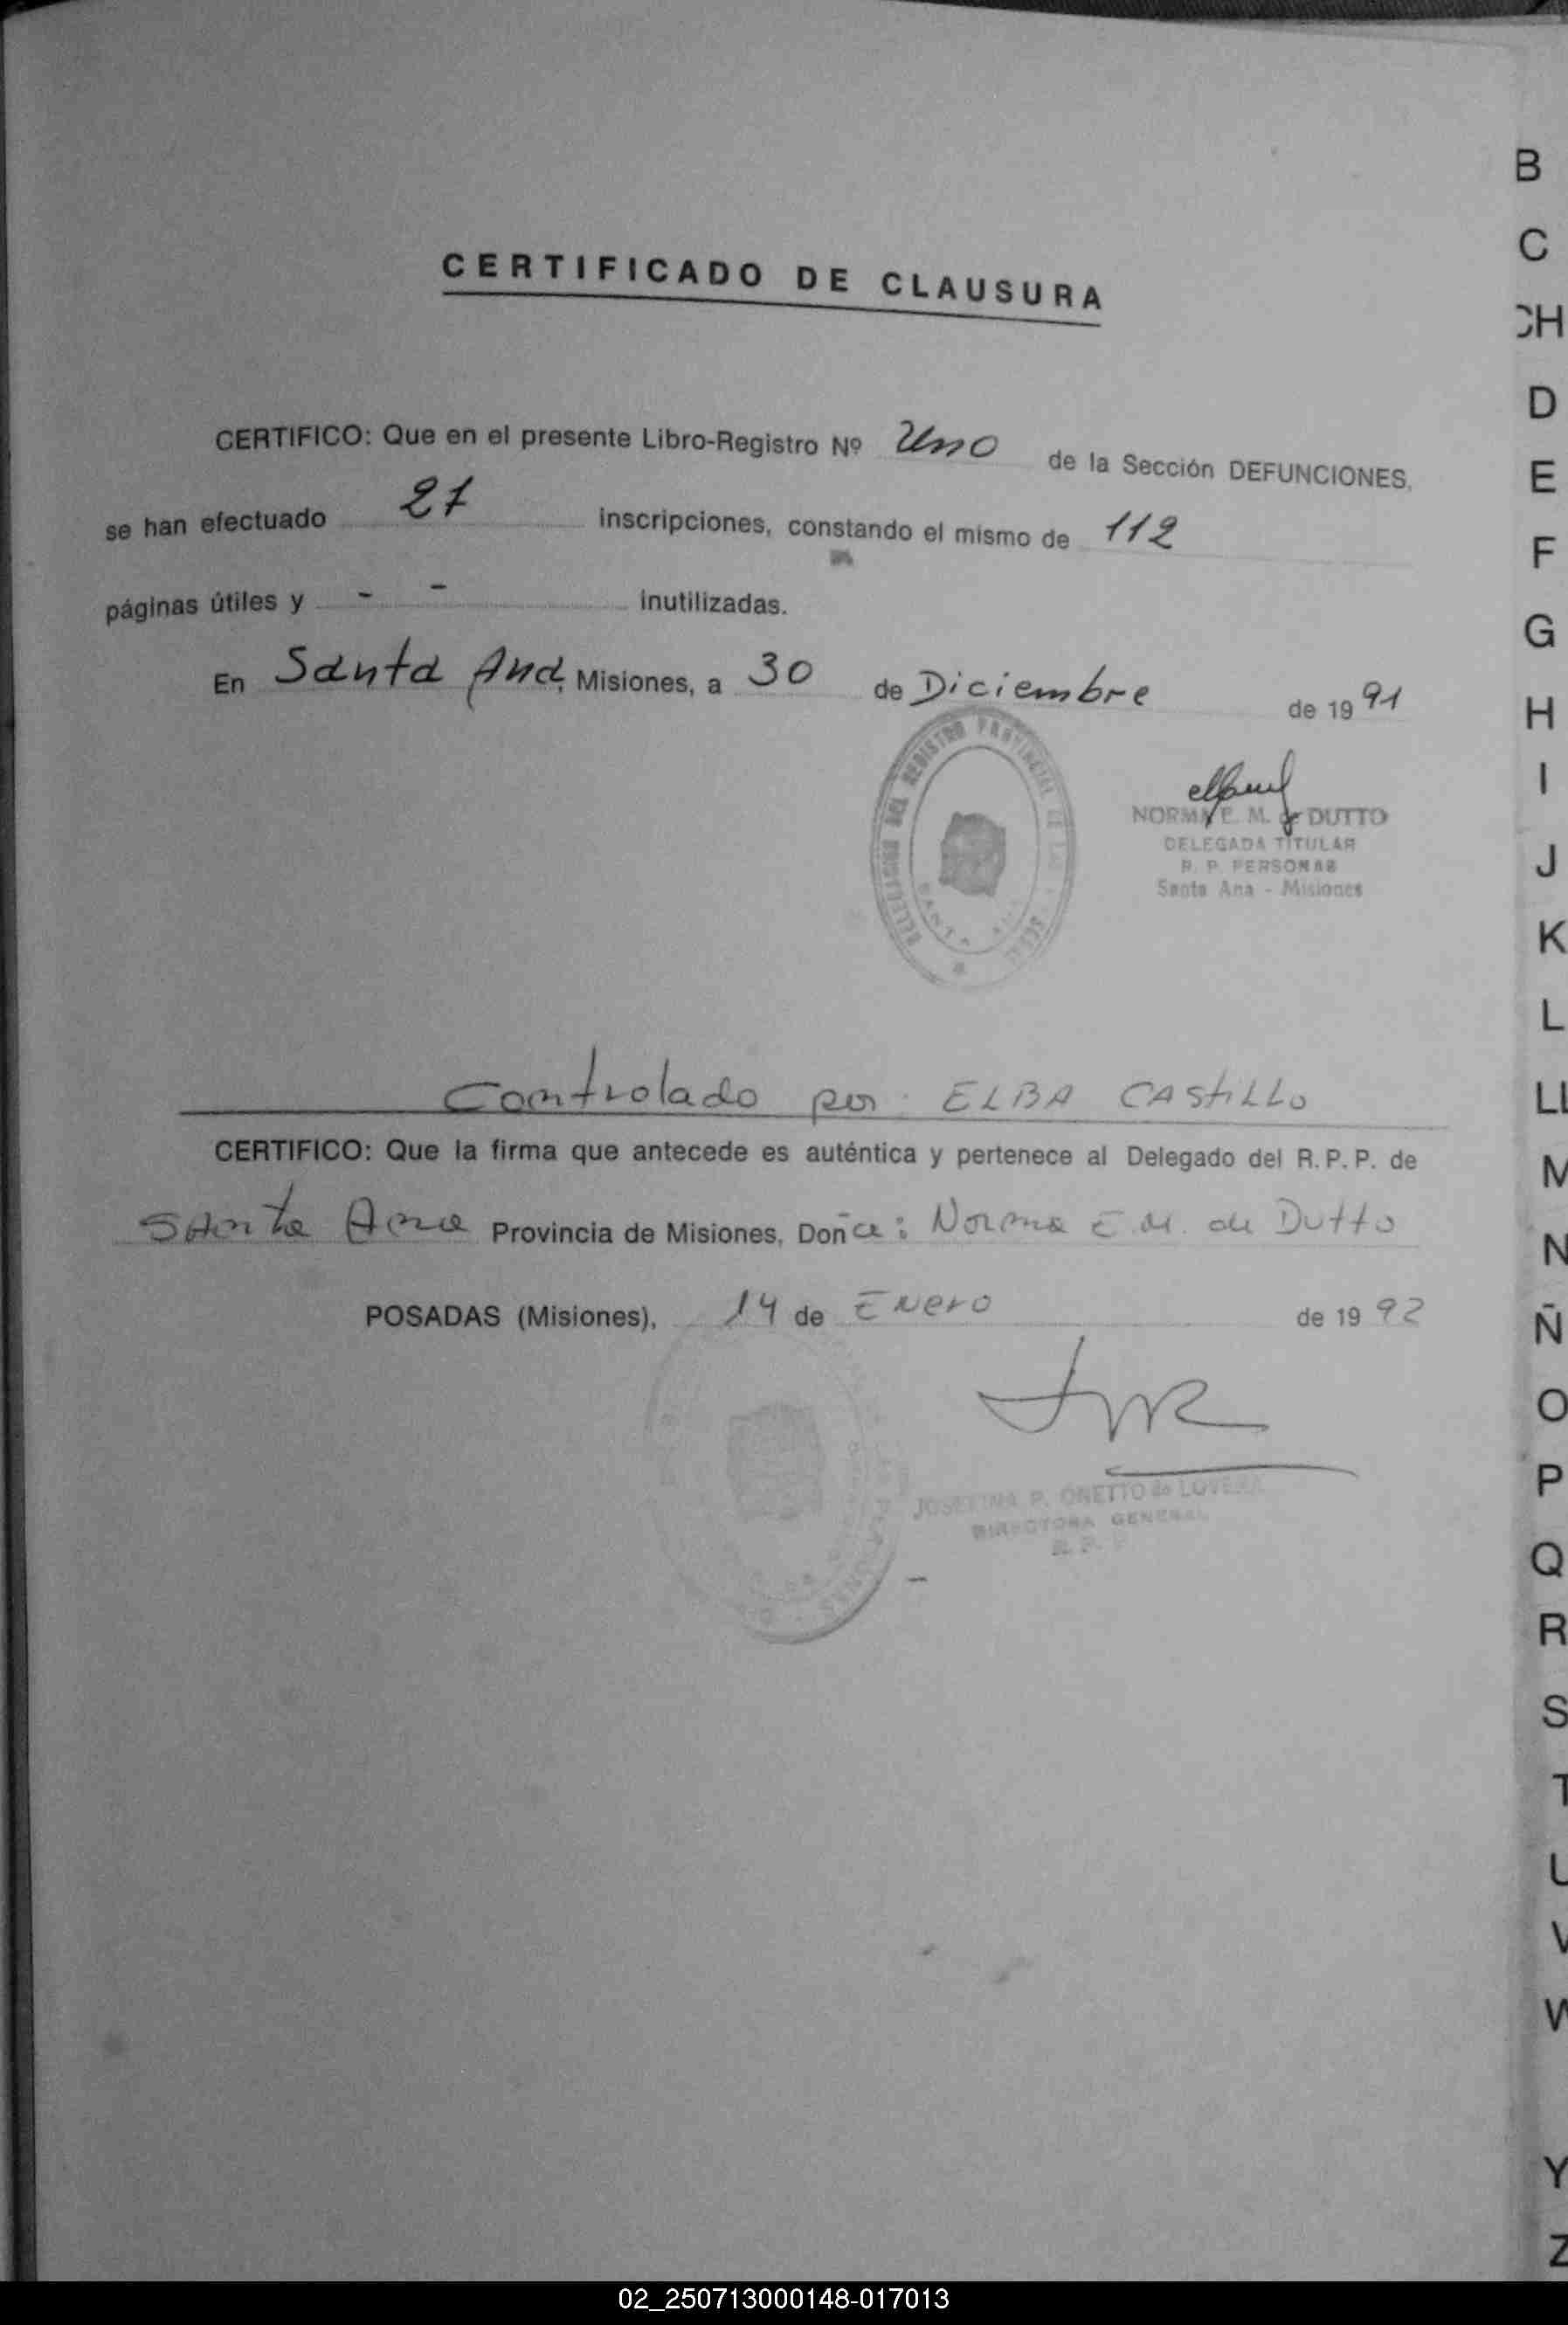 CERTIFICADO DE CLAUSURA
CERTIFICO: Que en el presente Libro-Registro Nº Uno de la Sección DEFUNCIONES,
se han efectuado 21 inscripciones, constando el mismo de 112
páginas útiles y - - inutilizadas.
En Santa Ana, Misiones, a 30 de Diciembre de 1991
REGISTRO PROVINCIAL DE LAS
SANTA ANA
NORMA E. M. de DUTTO
DELEGADA TITULAR
R. P. PERSONAS
Santa Ana - Misiones
Controlado por ELBA CASTILLO
CERTIFICO: Que la firma que antecede es auténtica y pertenece al Delegado del R.P.P. de
Santa Ana Provincia de Misiones, Doña: Norma E M. de Dutto
POSADAS (Misiones), 14 de Enero de 1992
JOSEFINA P. ONETTO de LOVERA
DIRECTORA GENERAL
R. P. P
B
C
CH
D
E
F
G
H
I
J
K
L
LL
M
N
Ñ
O
P
Q
R
S
T
U
V
W
Y
Z
02_250713000148-017013